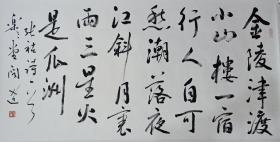 金陵津渡
小山樓一宿
行人自可
愁潮落夜
江斜月裏
兩三星火
是瓜洲
张祜诗一首